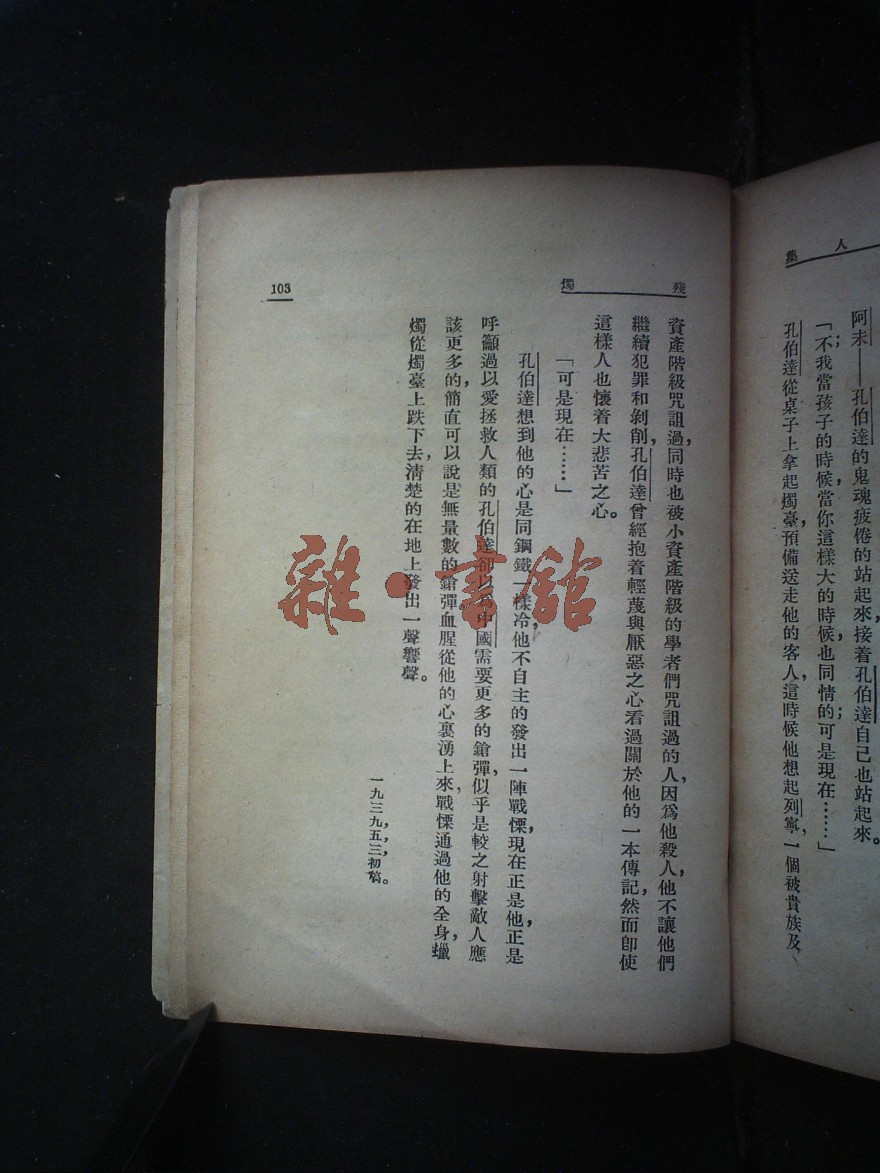 人集
阿未——孔伯達的鬼魂疲倦的站起來，接着孔伯達自己也站起來。
「不，我當孩子的時候，當你這樣大的時候，也同情的；可是現在……」
孔伯達從桌子上拿起燭臺，預備送走他的客人，這時候他想起列寧，一個被貴族及
殘燭
資產階級咒詛過，同時也被小資產階級的學者們咒詛過的人，因爲他殺人，他不讓他們
繼續犯罪和剝削，孔伯達曾經抱着輕蔑與厭惡之心看過關於他的一本傳記，然而卽使
這樣人也懷着大悲苦之心。
「可是現在……」
孔伯達想到他的心是同鋼鐵一樣冷，他不自主的發出一陣戰慄，現在正是他，正是
呼籲過以愛拯救人類的孔伯達卻以爲中國需要更多的鎗彈，似乎是較之射擊敵人應
該更多的，簡直可以說是無量數的鎗彈。血腥從他的心裏湧上來，戰慄通過他的全身，蠟
燭從燭臺上跌下去，淸楚的在地上發出一聲響聲。
一九三九，五，三，初稿。
103
雜·書館